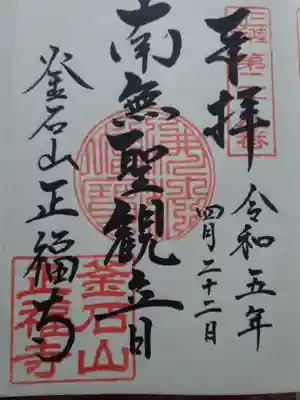 奉拝
令和五年
四月二十二日
南無聖観立日
釜石山正福寺
釜石山
正福寺